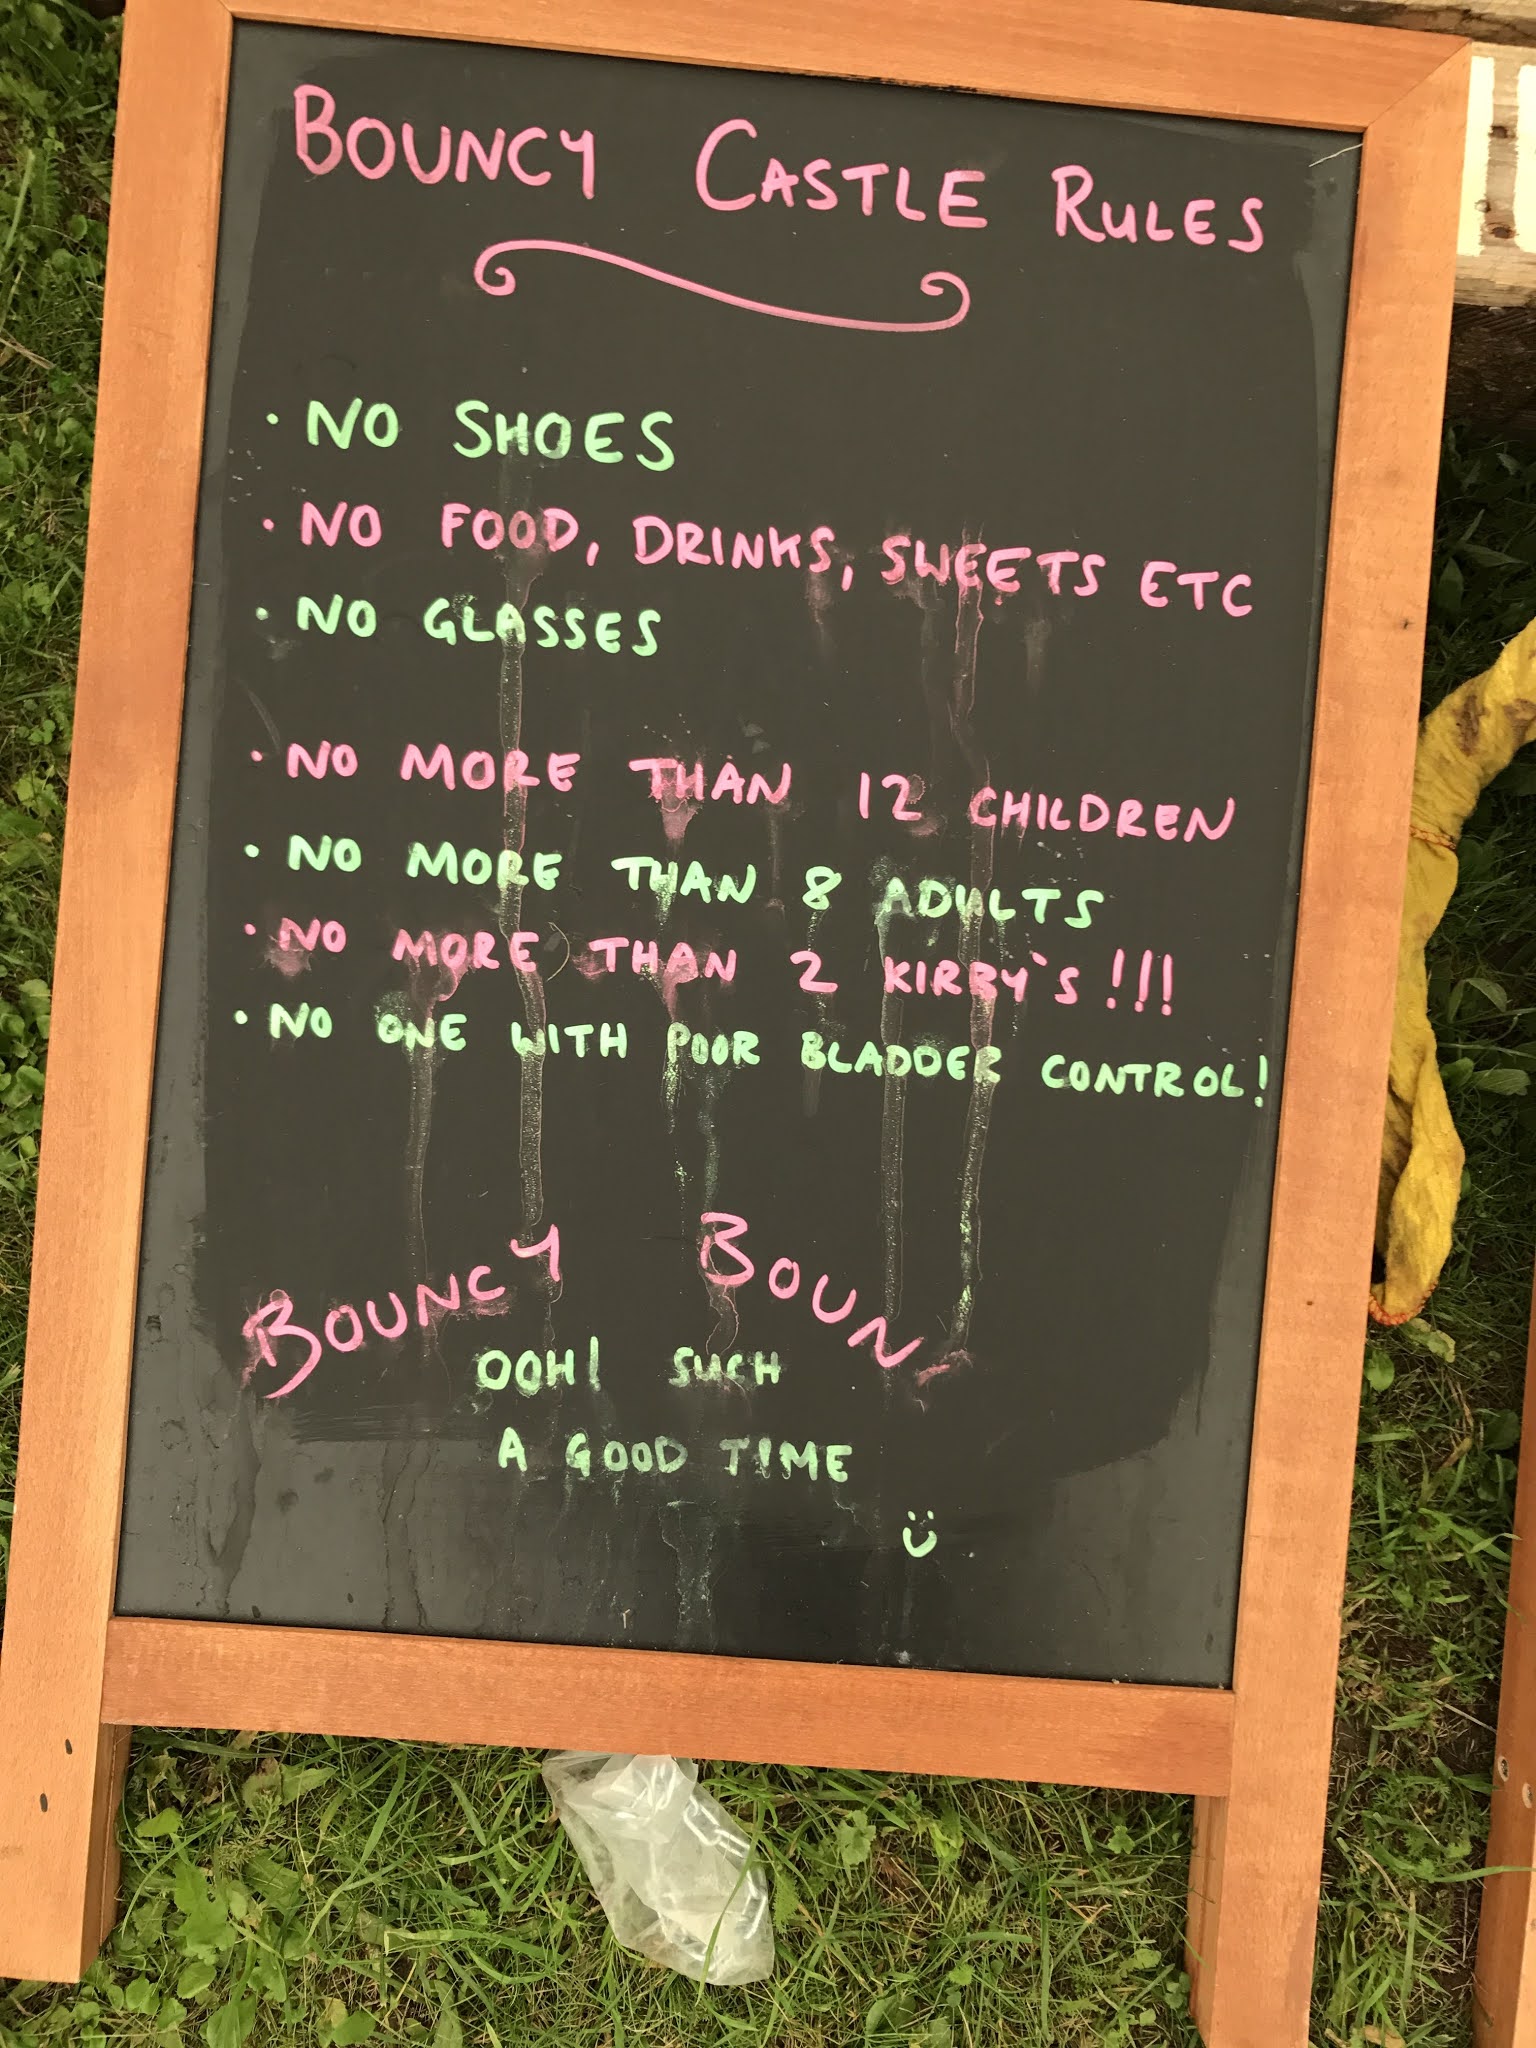 BOUNCY CASTLE RULES
· NO SHOES
· NO FOOD, DRINKS, SWEETS ETC
· NO GLASSES
· NO MORE THAN 12 CHILDREN
· NO MORE THAN 8 ADULTS
· NO MORE THAN 2 KIRBY`S !!!
· NO ONE WITH POOR BLADDER CONTROL!
BOUNCY BOUN
OOH! SUCH
A GOOD TIME